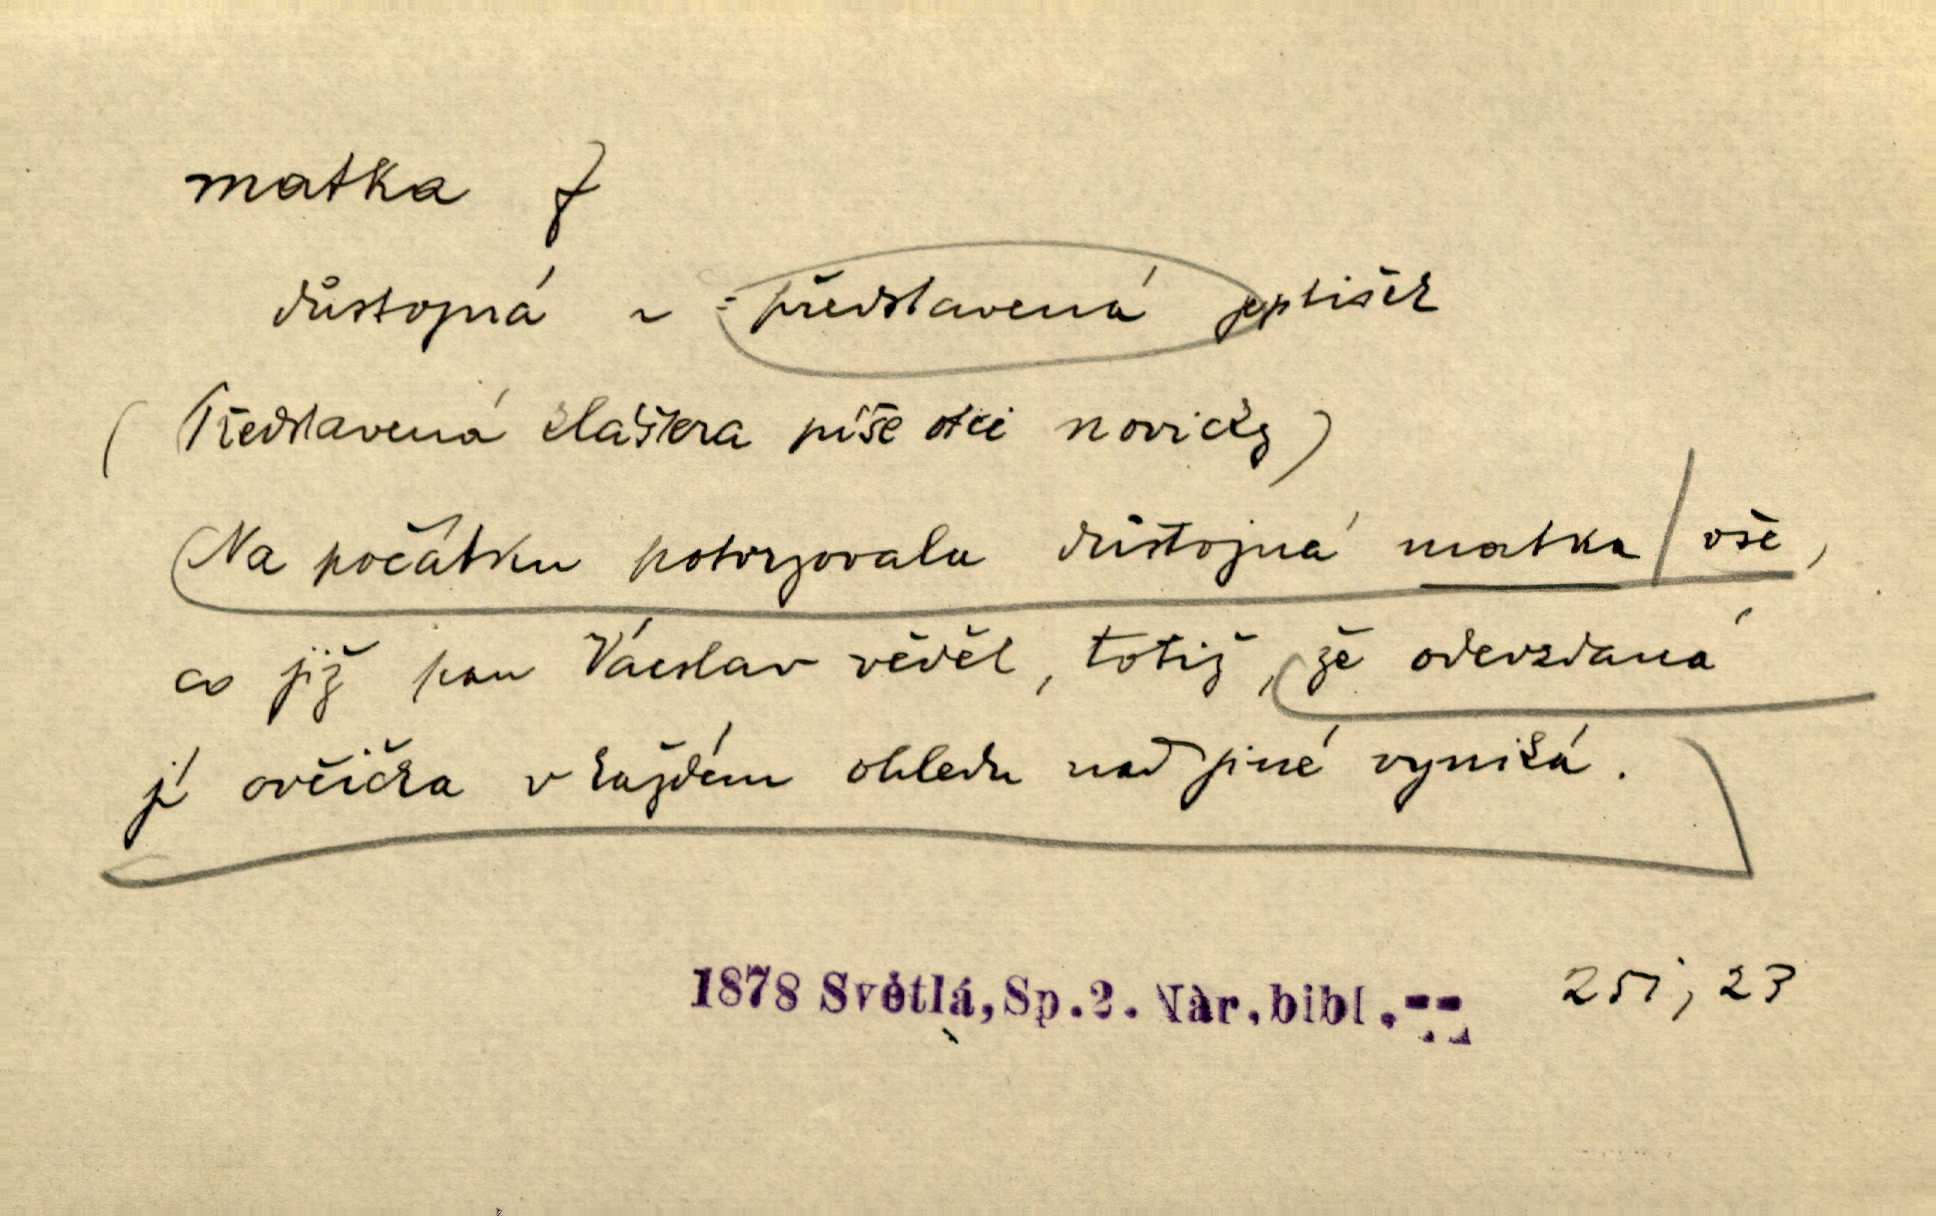 matka f
důstojná ~ = představená jeptišek
(Představená kláštera píše otci novicky)
Na počátku potvrzovala důstojná matka / vše,
co již pan Václav věděl, totiž, že odevzdaná
jí ovčička v každém ohledu nad jiné vyniká.
1878 Světlá, Sp.2. Nár.bibl. 251, 23